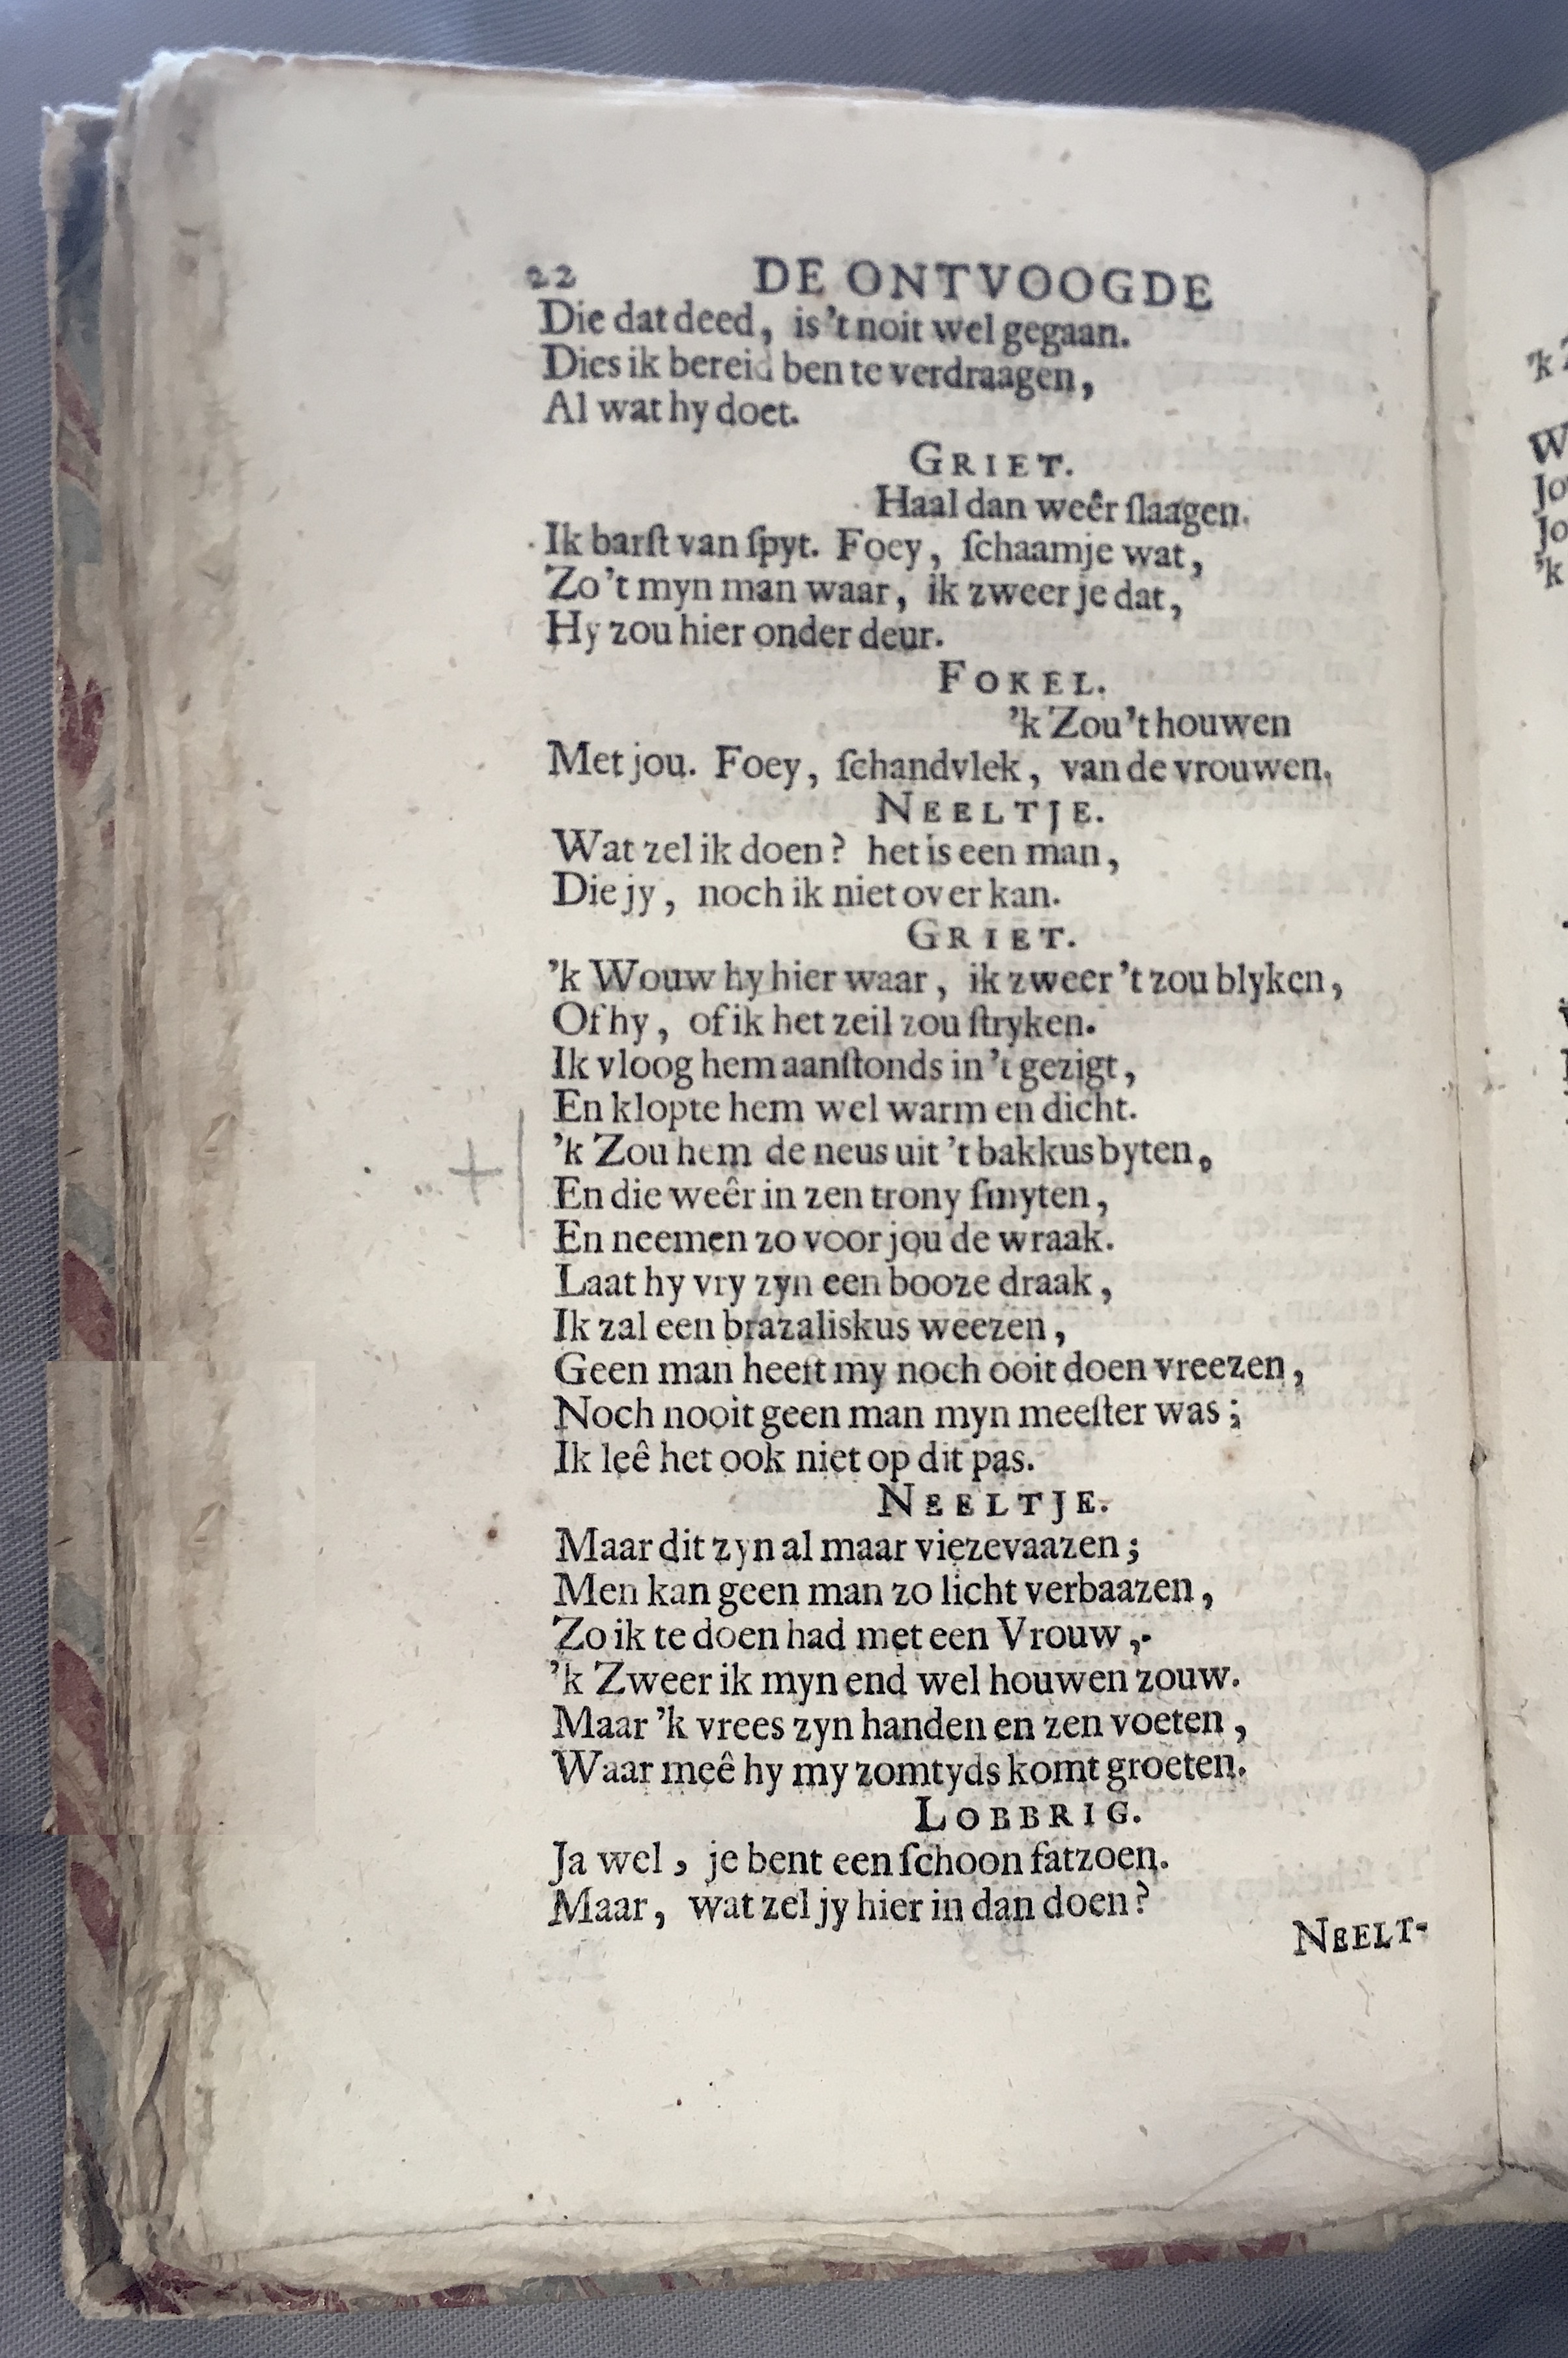 22 DE ONTVOOGDE
Die dat deed, is 't noit wel gegaan.
Dies ik bereid ben te verdraagen,
Al wat hy doet.
GRIET.
Haal dan weêr ſlaagen.
Ik barſt van ſpyt. Foey, ſchaamje wat,
Zo 't myn man waar, ik zweer je dat,
Hy zou hier onder deur.
FOKEL.
'k Zou 't houwen
Met jou. Foey, ſchandvlek, van de vrouwen.
NEELTJE.
Wat zel ik doen? het is een man,
Die jy, noch ik niet over kan.
GRIET.
'k Wouw hy hier waar, ik zweer 't zou blyken,
Of hy, of ik het zeil zou ſtryken.
Ik vloog hem aanſtonds in 't gezigt,
En klopte hem wel warm en dicht.
'k Zou hem de neus uit 't bakkus byten,
En die weêr in zen trony ſmyten,
En neemen zo voor jou de wraak.
Laat hy vry zyn een booze draak,
Ik zal een brazaliskus weezen,
Geen man heeft my noch ooit doen vreezen,
Noch nooit geen man myn meeſter was;
Ik leê het ook niet op dit pas.
NEELTJE.
Maar dit zyn al maar viezevaazen;
Men kan geen man zo licht verbaazen,
Zo ik te doen had met een Vrouw,
'k Zweer ik myn end wel houwen zouw.
Maar 'k vrees zyn handen en zen voeten,
Waar meê hy my zomtyds komt groeten.
LOBBRIG.
Ja wel, je bent een ſchoon fatzoen.
Maar, wat zel jy hier in dan doen?
NEELT-
'k
Jo
Jo
'k